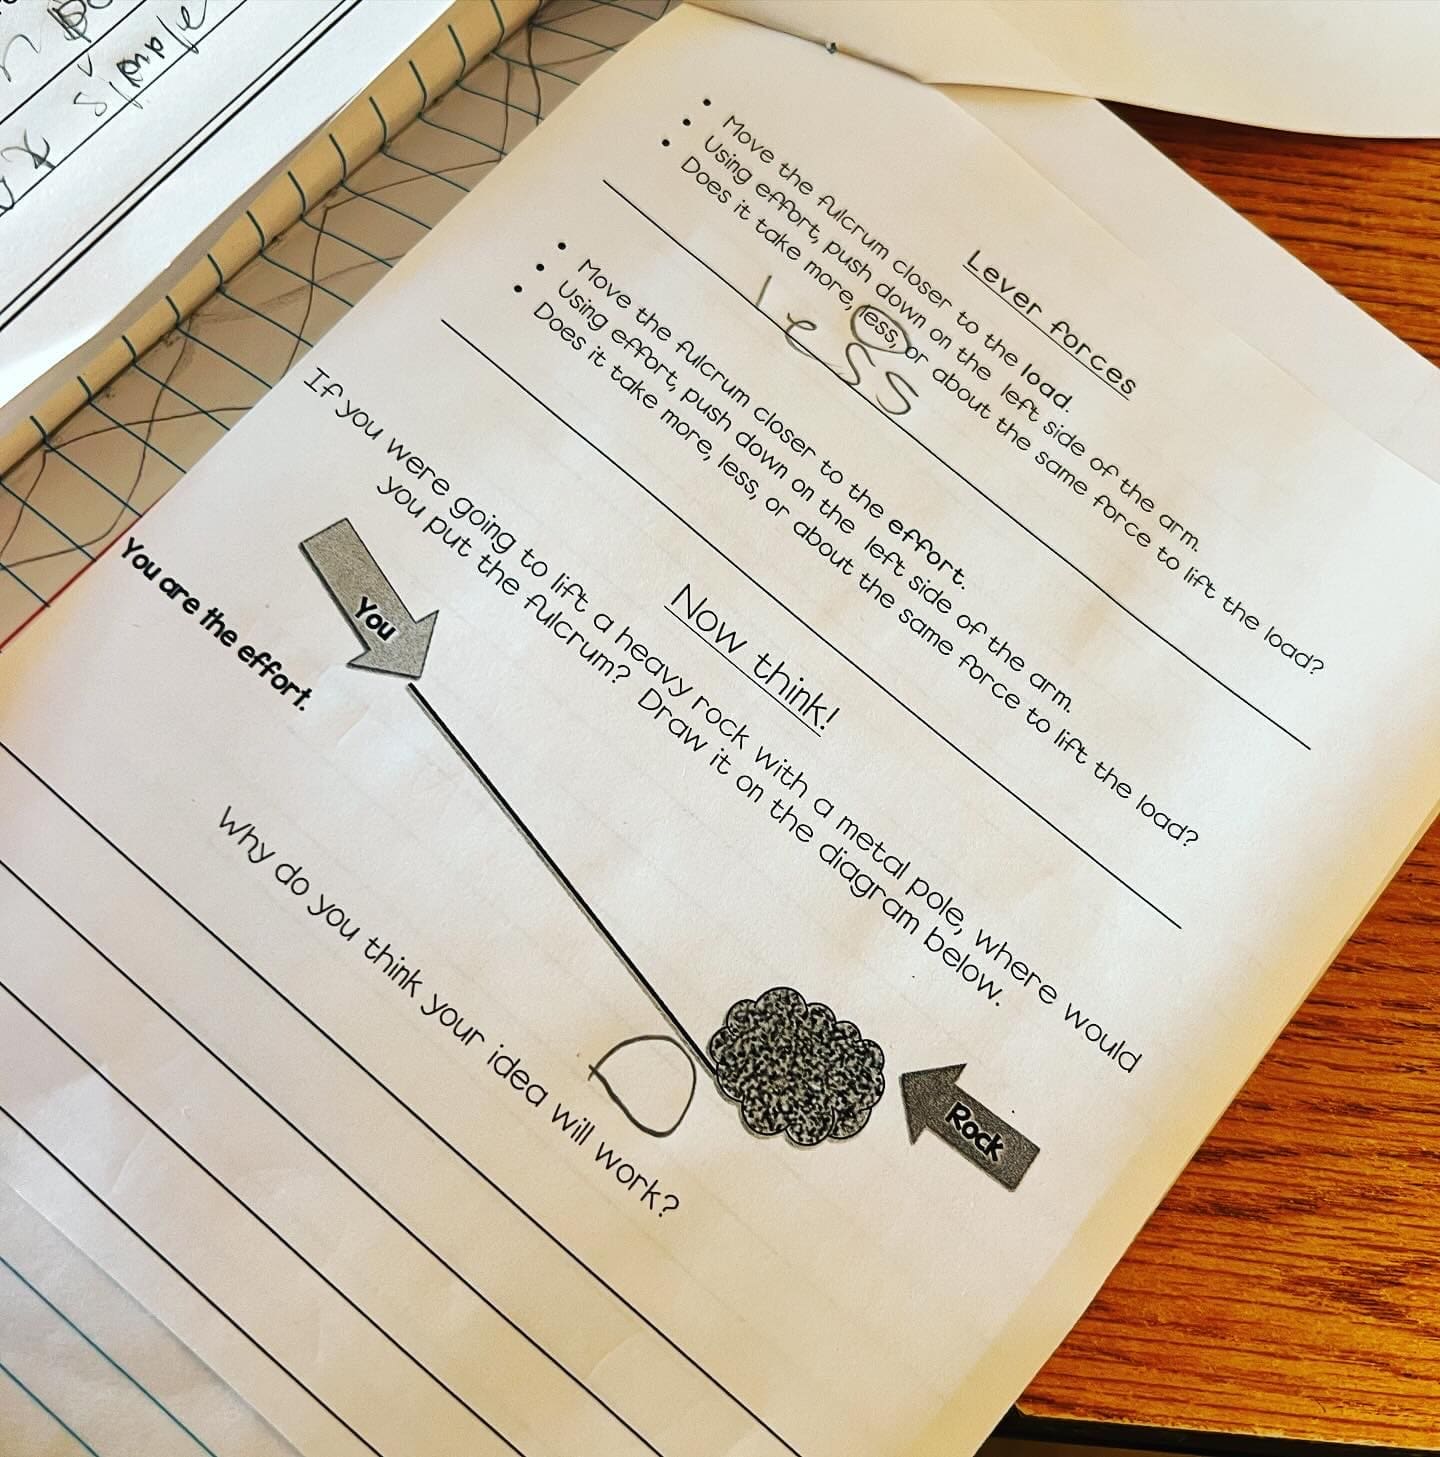 simple
Lever forces
• Move the fulcrum closer to the load.
• Using effort, push down on the left side of the arm.
• Does it take more, less, or about the same force to lift the load?
less
• Move the fulcrum closer to the effort.
• Using effort, push down on the left side of the arm.
• Does it take more, less, or about the same force to lift the load?
Now think!
If you were going to lift a heavy rock with a metal pole, where would
you put the fulcrum? Draw it on the diagram below.
You
You are the effort.
Rock
Why do you think your idea will work?